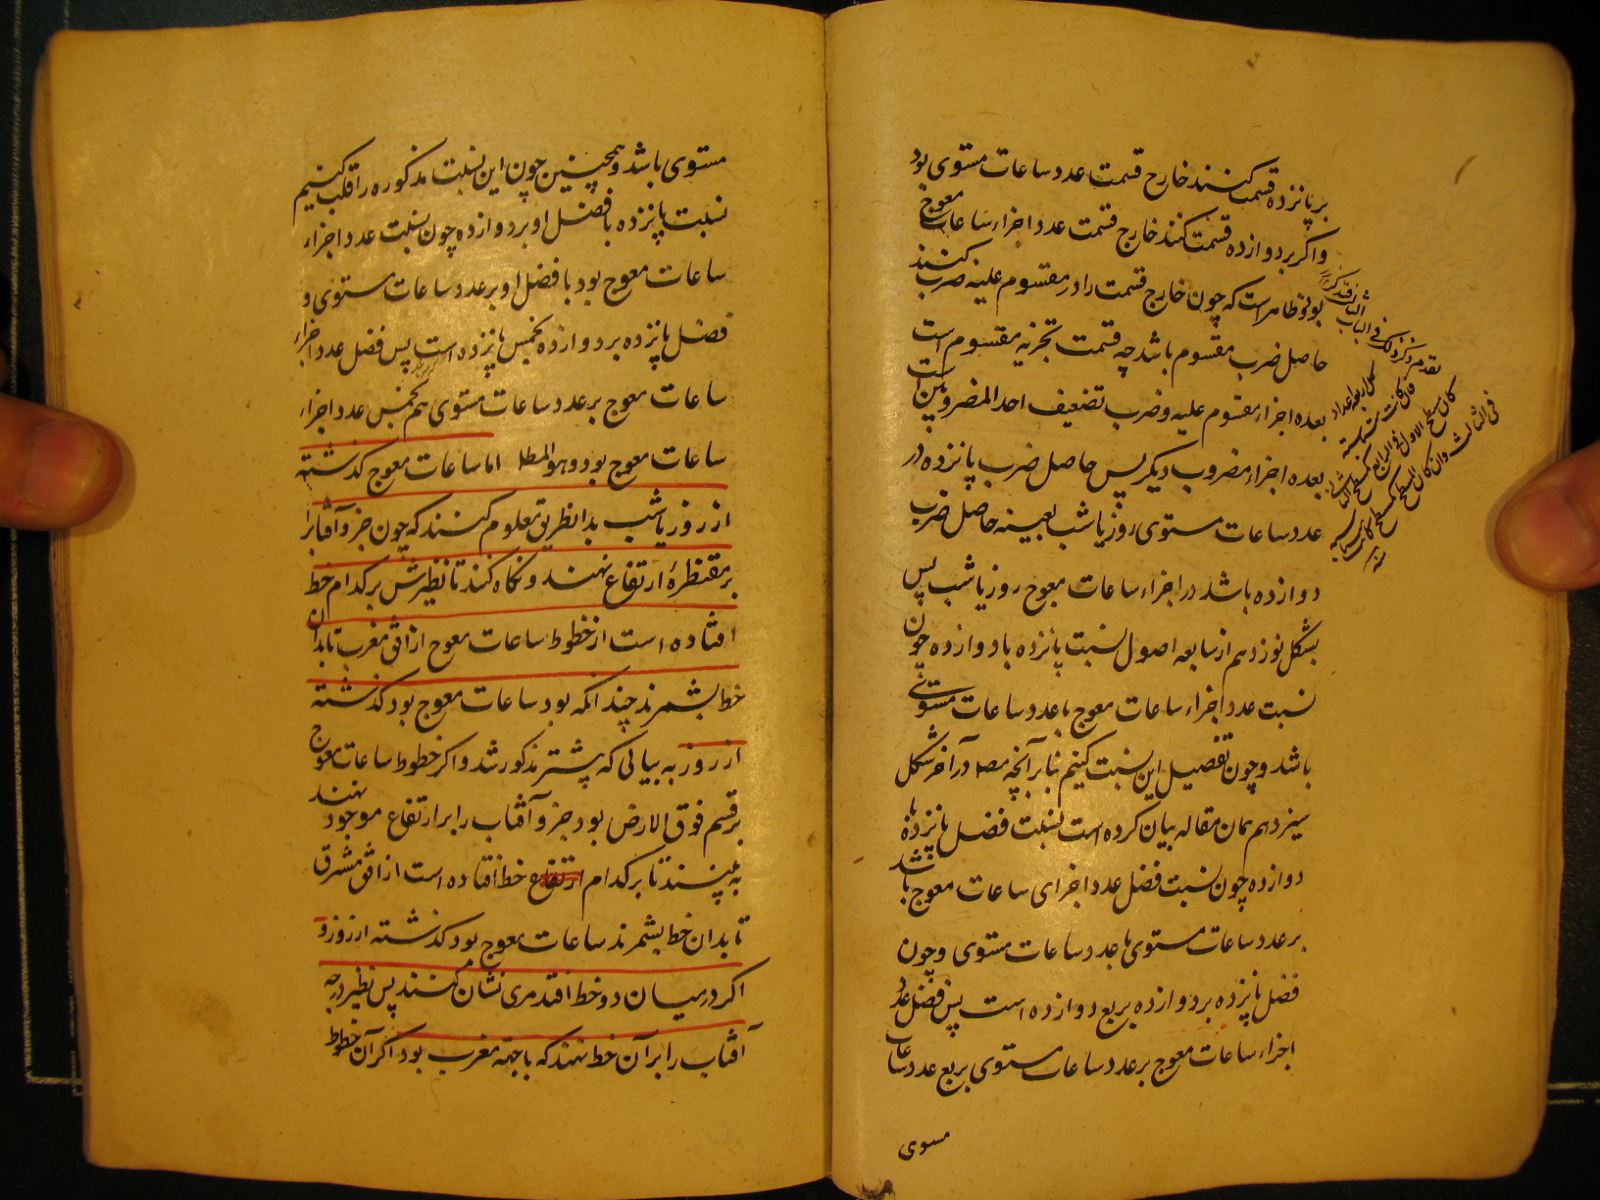 بر پانزده قسمت کنند خارج قسمت عدد ساعات مستوی بود
و اگر بر دوازده قسمت کنند خارج قسمت عدد اجزاء ساعات معوج
بود و ظاهر است که چون خارج قسمت را در مقسوم علیه ضرب کنند
حاصل ضرب مقسوم باشد چه قسمت تجزیه مقسوم است
بعده اجزاء مقسوم علیه و ضرب تضعیف احد المضروبین است
بعده اجزاء مضروب دیگر پس حاصل ضرب پانزده در
عدد ساعات مستوی روز یا شب بعینه حاصل ضرب
دوازده باشد در اجزاء ساعات معوج روز یا شب پس
بشکل نوزدهم از سابعه اصول نسبت پانزده با دوازده چون
نسبت عدد اجزاء ساعات معوج با عدد ساعات مستوی
باشد و چون تفصیل این نسبت کنیم بنابر آنچه مص در آخر شکل
سیزدهم همان مقاله بیان کرده است نسبت فضل پانزده با
دوازده چون نسبت فضل عدد اجزای ساعات معوج باشد
بر عدد ساعات مستوی با عدد ساعات مستوی و چون
فضل پانزده بر دوازده بربع دوازده است پس فضل عدد
اجزاء ساعات معوج بر عدد ساعات مستوی بربع عدد ساعات
مستوی
کل اربعة اعداد
فان کانت متناسبة
کان مسطح الاول فی الرابع کمسطح الثانی
فی الثالث وان کان المسطح کالمسطح کانت متناسبة
مستوی باشد و همچنین چون این نسبت مذکوره را قلب کنیم
نسبت پانزده با فضل او بر دوازده چون نسبت عدد اجزاء
ساعات معوج بود با فضل او بر عدد ساعات مستوی و
فضل پانزده بر دوازده بخمس پانزده است پس فضل عدد اجزاء
ساعات معوج بر عدد ساعات مستوی هم بخمس عدد اجزاء
ساعات معوج بود و هو المط اما ساعات معوج گذشته
از روز یا شب بدانطریق معلوم کنند که چون جزو آفتابرا
بر مقنطرهٔ ارتفاع نهند و نگاه کنند تا نظیرش بر کدام خط
افتاده است از خطوط ساعات معوج از افق مغرب تا بدان
خط بشمرند چندانکه بود ساعات معوج بود گذشته
از روز به بیانی که پیشتر مذکور شد و اگر خطوط ساعات معوج
بر قسم فوق الارض بود جزو آفتاب را بر ارتفاع موجود نهند
به بینند تا بر کدام ارتفاع خط افتاده است از افق مشرق
تا بدان خط بشمرند ساعات معوج بود گذشته از روز و
اگر در میان دو خط افتد مری نشان کنند پس نظیر درجه
آفتاب را بر آن خط نهند که با جهة مغرب بود اگر آن خطوط